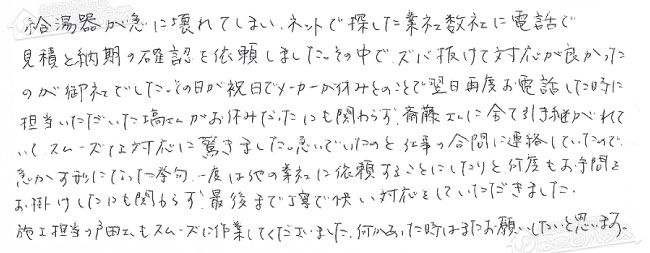 給湯器が急に壊れてしまい、ネットで探した業社数社に電話で
見積と納期の確認を依頼しました。その中で、ズバ抜けて対応が良かった
のが御社でした。その日が祝日でメーカーが休みとのことで翌日再度お電話した時に
担当いただいた塙さんがお休みだったにも関わらず、斎藤さんに全て引き継がれて
いて、スムーズな対応に驚きました。急いでいたのと仕事の合間に連絡していたので、
急かす形になった挙句、一度は他の業社に依頼することにしたりと何度もお手間を
お掛けしたにも関わらず、最後まで丁寧で快い対応をしていただきました。
施工担当の戸田さんもスムーズに作業してくださいました。何かあった時はまたお願いしたいと思います。